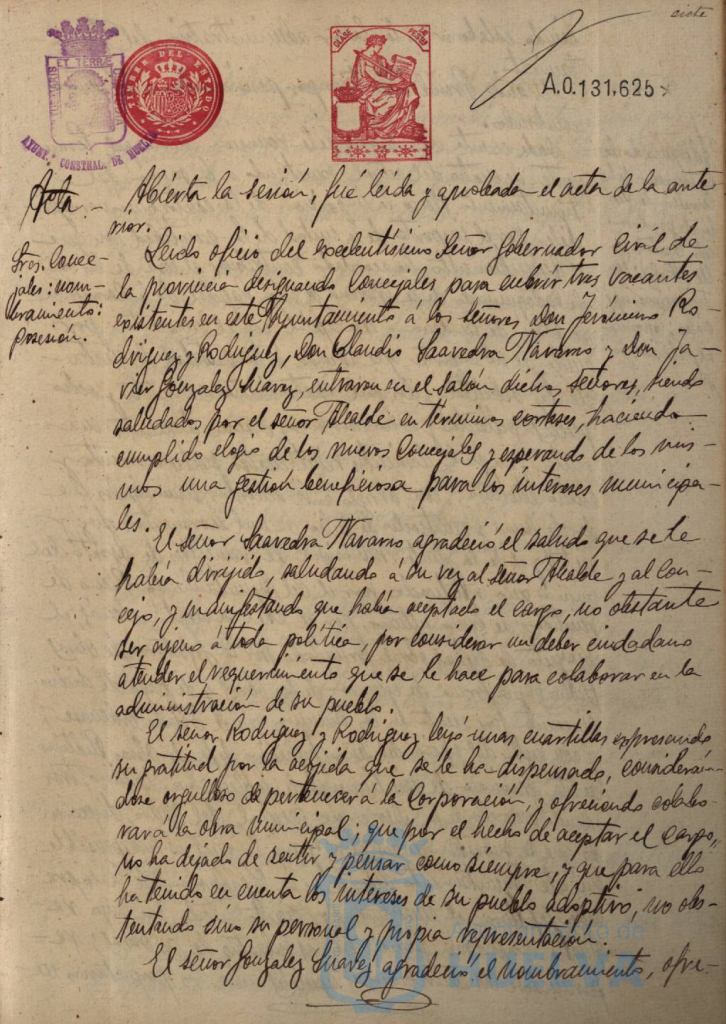 siete
PORTUS MARIS ET TERRAE CUSTODIA
AYUNT. CONSTNAL. DE HUELVA
TIMBRE DEL ESTADO
7ª CLASE
PESETA
A.0.131.625
Acta.-
Abierta la sesión, fué leida y aprobada el acta de la ante
rior.
Sres. Conce-
jales: nom-
bramiento:
posesión.
Leido oficio del excelentísimo Señor Gobernador Civil de
la provincia designando Concejales para cubrir tres vacantes
existentes en este Ayuntamiento á los señores Don Jerónimo Ro-
driguez y Rodriguez, Don Claudio Saavedra Navarro y Don Ja-
vier Gonzalez Suarez, entraron en el Salón dichos señores, siendo
saludados por el señor Alcalde en términos corteses, haciendo
cumplido elogio de los nuevos Concejales y esperando de los mis-
mos una gestión beneficiosa para los intereses municipa-
les.
El señor Saavedra Navarro agradeció el saludo que se le
había dirijido, saludando á su vez al señor Alcalde y al Con-
cejo, y manifestando que había aceptado el cargo, no obstante
ser ajeno á toda política, por considerar un deber ciudadano
atender el requerimiento que se le hace para colaborar en la
administración de su pueblo.
El señor Rodriguez y Rodriguez leyó unas cuartillas expresando
su gratitud por la acojida que se le ha dispensado, considerán-
dose orgulloso de pertenecer á la Corporación, y ofreciendo colabo-
rar á la obra municipal; que por el hecho de aceptar el cargo,
no ha dejado de sentir y pensar como siempre, y que para ello
ha tenido en cuenta los intereses de su pueblo adoptivo, no obs-
tentando sino su personal y propia representación.
El señor Gonzalez Suarez agradeció el nombramiento, ofre-
Ayuntamiento de
HUELVA